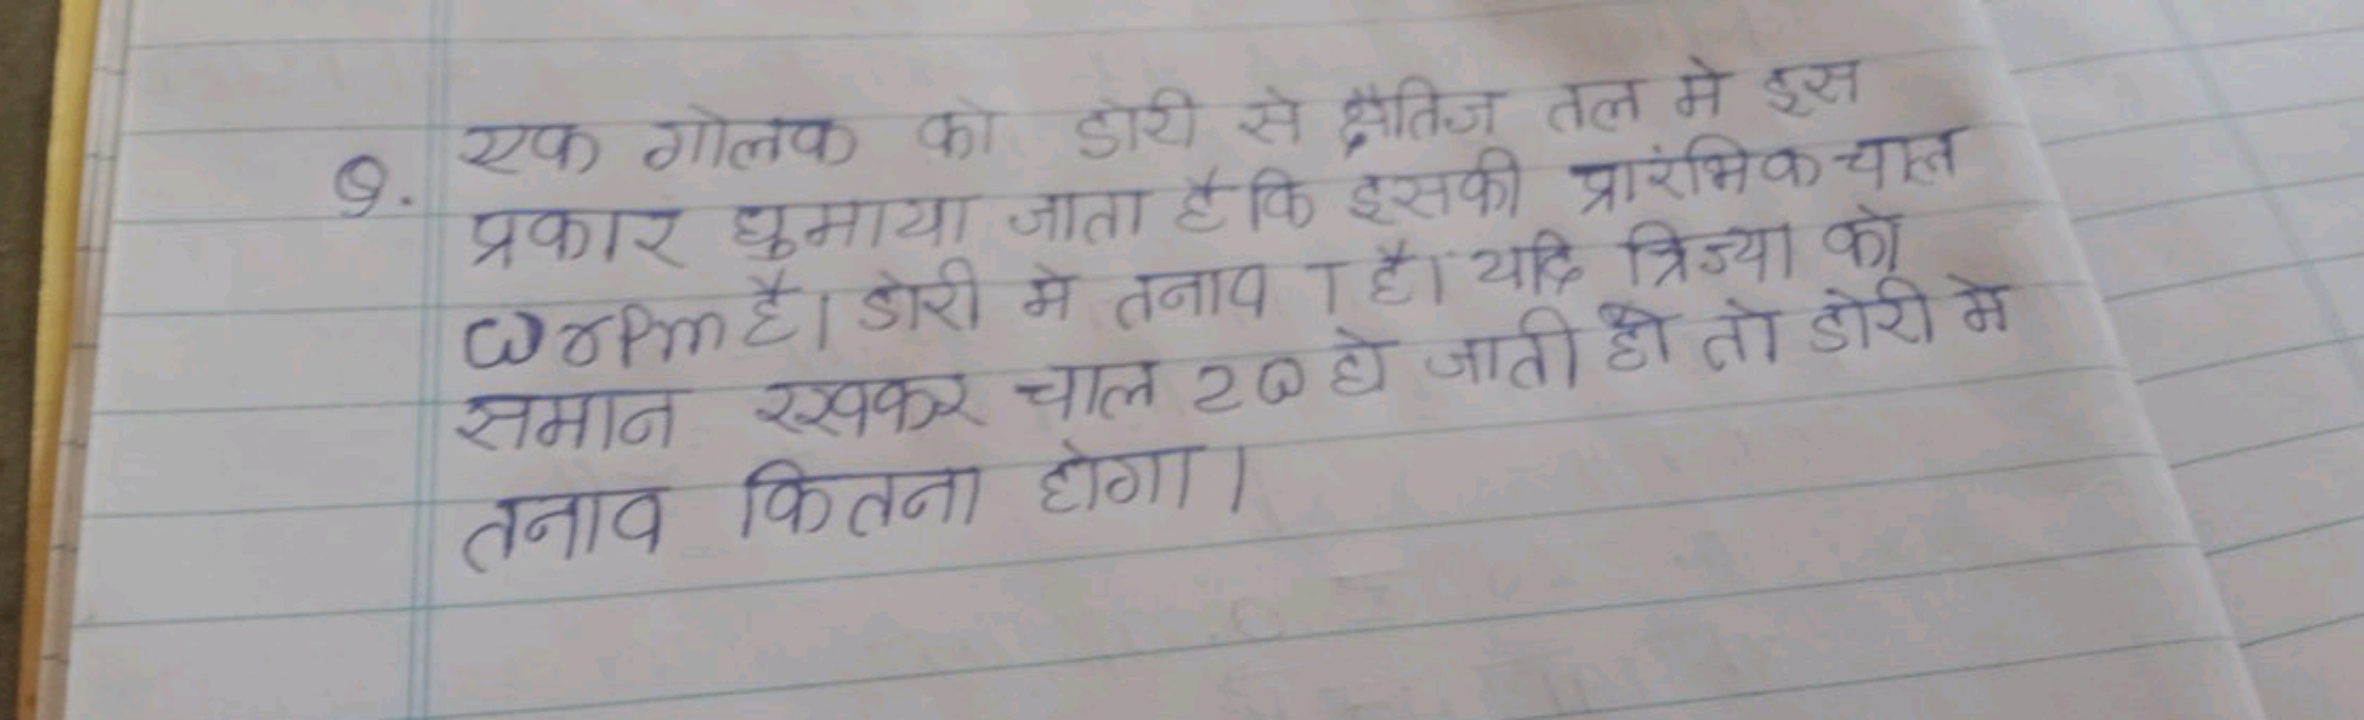 Q. एक गोलक को डोरी से क्षैतिज तल मे इस
प्रकार घुमाया जाता है कि इसकी प्रारंभिक चाल
ω rpm है। डोरी मे तनाव T है। यदि त्रिज्या को
समान रखकर चाल 2ω हो जाती हो तो डोरी मे
तनाव कितना होगा।